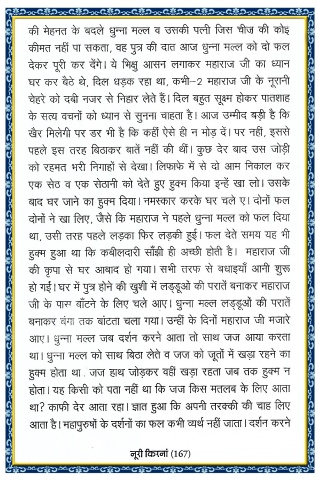 की मेहनत के बदले धुन्ना मल्ल व उसकी पत्नी जिस चीज की कोइ
कीमत नहीं पा सकता, वह पुत्र की दात आज धुन्ना मल्ल को दो फल
देकर पूरी कर देंगे। ये भिक्षु आसन लगाकर महाराज जी का ध्यान
घर कर बैठे थे, दिल धड़क रहा था, कभी–2 महाराज जी के नूरानी
चेहरे को दबी नजर से निहार लेते हैं। दिल बहुत सूक्ष्म होकर पातशाह
के सत्य वचनों को ध्यान से सुनना चाहता है। आज उम्मीद बड़ी है कि
खैर मिलेगी पर डर भी है कि कहीं ऐसे ही न मोड़ दें। पर नहीं, इससे
पहले इस तरह बिठाकर बातें नहीं की थीं। कुछ देर बाद उस जोड़ी
को रहमत भरी निगाहों से देखा। लिफाफे में से दो आम निकाल कर
एक सेठ व एक सेठानी को देते हुए हुक्म किया इन्हें खा लो। उसके
बाद घर जाने का हुक्म दिया। नमस्कार करके घर चले ए। दोनों फल
दोनों ने खा लिए, जैसे कि महाराज ने पहले धुन्ना मल्ल को फल दिया
था, उसी तरह पहले लड़का फिर लड़की हुई। फल देते समय यह भी
हुक्म हुआ था कि कबीलदारी साँझी ही अच्छी होती है। महाराज जी
की कृपा से घर आबाद हो गया। सभी तरफ से बधाइयाँ आनी शुरू
हो गईं। घर में पुत्र होने की खुशी में लड्डूओं की परातें बनाकर महाराज
जी के पास बाँटने के लिए चले आए। धुन्ना मल्ल लड्डूओं की परातें
बनाकर बंगा तक बांटता चला गया। उन्हीं के दिनों महाराज जी मजारे
आए। धुन्ना मल्ल जब दर्शन करने आता तो साथ जज आया करता
था। धुन्ना मल्ल को साथ बिठा लेते व जज को जूतों में खड़ा रहने का
हुक्म होता था. जज हाथ जोड़कर वहीं खड़ा रहता जब तक हुक्म न
होता। यह किसी को पता नहीं था कि जज किस मतलब के लिए आता
था? काफी देर आता रहा। ज्ञात हुआ कि अपनी तरक्की की चाह लिए
आता है। महापुरुषों के दर्शनों का फल कभी व्यर्थ नहीं जाता। दर्शन करने
नूरी किरनां (167)